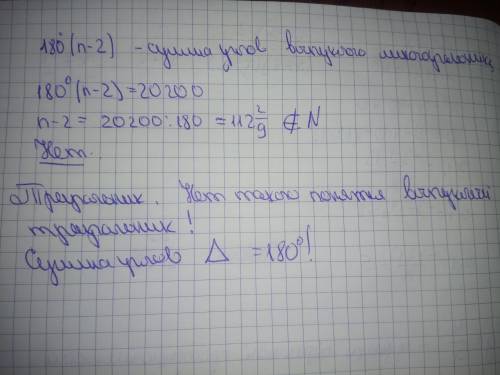 180°(n-2) - сумма углов выпуклого многоугольника
180°(n-2)=20200
n-2 = 20200:180 = 112 2/9 ∉ N
Нет.
Треугольник. Нет такого понятия выпуклый
треугольник!
Сумма углов △ =180°!